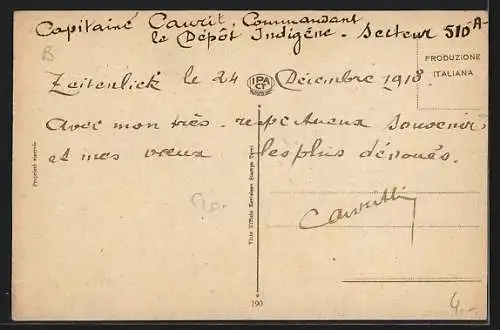 Capitaine Caurit, Commandant
le Dépôt Indigène. Secteur 510 A-
B
PRODUZIONE
ITALIANA
Zeitenlick le 24 Décembre 1918
IPA
CT
Avec mon très respectueux souvenir
et mes vœux les plus dévoués.
Proprietà riservata
190
4.-